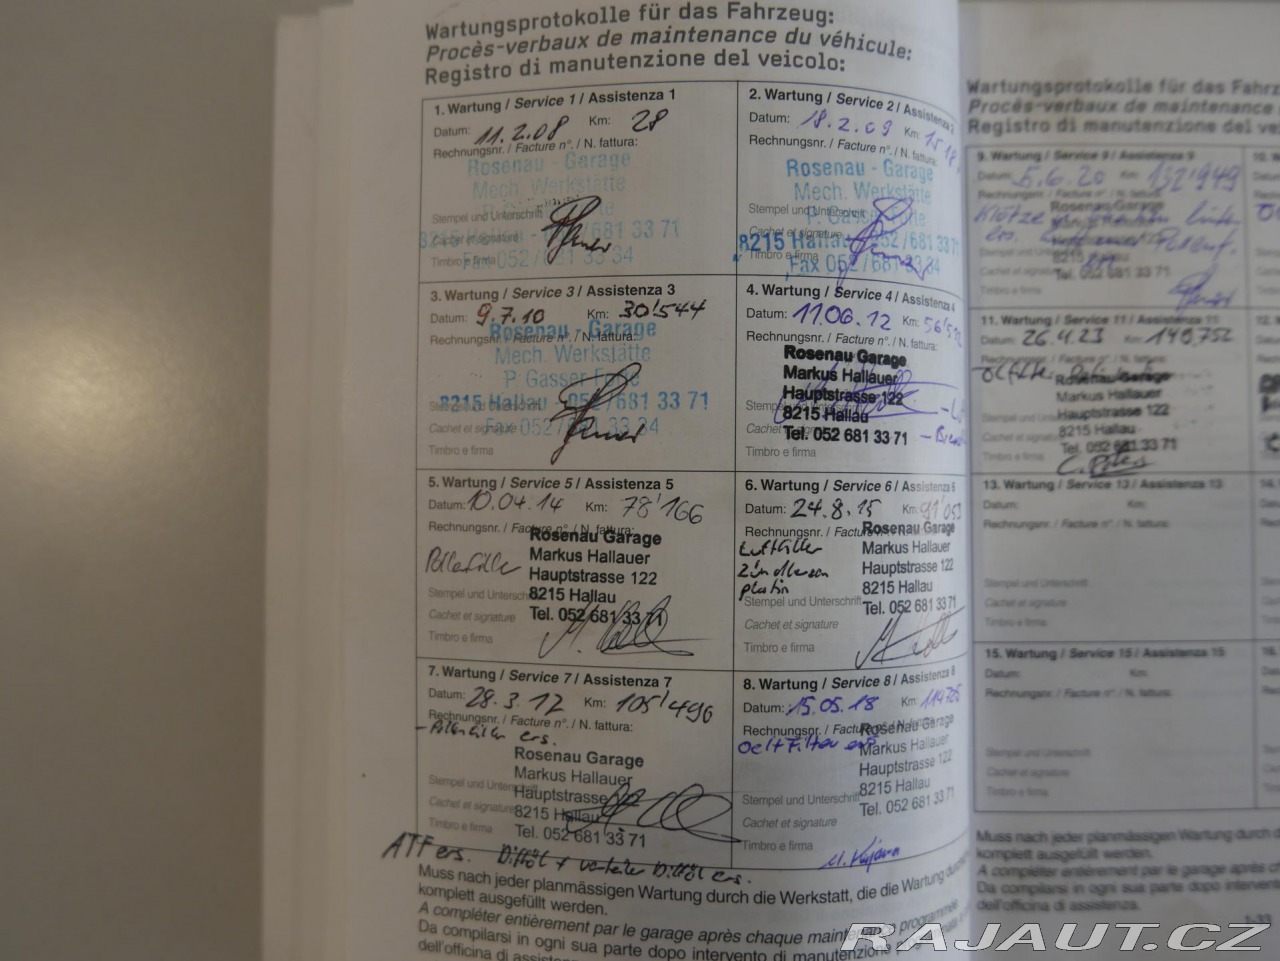 Wartungsprotokolle für das Fahrzeug:
Procès-verbaux de maintenance du véhicule:
Registro di manutenzione del veicolo:
1. Wartung / Service 1 / Assistenza 1
Datum: 11.2.08 Km: 28
Rechnungsnr. / Facture n°. / N. fattura:
Rosenau - Garage
Mech. Werkstätte
Stempel und Unterschrift
Cachet et signature
8215 Hallau - 052/681 33 71
Timbro e firma
Fax 052/681 33 34
2. Wartung / Service 2 / Assistenza 2
Datum: 18.2.09 Km:
Rechnungsnr. / Facture n°. / N. fattura:
Rosenau - Garage
Mech. Werkstätte
P. Gasser
Stempel und Unterschrift
Cachet et signature
8215 Hallau 052/681 33 71
Timbro e firma
Fax 052/681 33 34
3. Wartung / Service 3 / Assistenza 3
Datum: 9.7.10 Km: 30'544
Rechnungsnr. / Facture n°. / N. fattura:
Rosenau - Garage
Mech. Werkstätte
P. Gasser
Stempel und Unterschrift
8215 Hallau - 052/681 33 71
Cachet et signature
Fax 052/681 33 34
Timbro e firma
4. Wartung / Service 4 / Assistenza 4
Datum: 11.06.12 Km:
Rechnungsnr. / Facture n°. / N. fattura:
Rosenau Garage
Markus Hallauer
Hauptstrasse 122
8215 Hallau
Tel. 052 681 33 71
Cachet et signature
Timbro e firma
5. Wartung / Service 5 / Assistenza 5
Datum: 10.04.14 Km: 78'166
Rechnungsnr. / Facture n°. / N. fattura:
Rosenau Garage
Markus Hallauer
Pollenfilter
Hauptstrasse 122
8215 Hallau
Tel. 052 681 33 71
Stempel und Unterschrift
Cachet et signature
Timbro e firma
6. Wartung / Service 6 / Assistenza 6
Datum: 24.8.15 Km: 91'053
Rechnungsnr. / Facture n°. / N. fattura:
Rosenau Garage
Luftfilter
Markus Hallauer
Zündkerzen
Hauptstrasse 122
platin
8215 Hallau
Stempel und Unterschrift
Tel. 052 681 33 71
Cachet et signature
Timbro e firma
7. Wartung / Service 7 / Assistenza 7
Datum: 28.3.17 Km: 105'496
Rechnungsnr. / Facture n°. / N. fattura:
- Pollenfilter ers.
Rosenau Garage
Markus Hallauer
Hauptstrasse
8215 Hallau
Tel. 052 681 33 71
Stempel und Unterschrift
Cachet et signature
Timbro e firma
ATF ers. Difföl + verteiler Difföl ers.
8. Wartung / Service 8 / Assistenza 8
Datum: 15.05.18 Km:
Rechnungsnr. / Facture n°. / N. fattura:
Oel+Filter ers
Rosenau Garage
Markus Hallauer
Hauptstrasse 122
8215 Hallau
Tel. 052 681 33 71
Stempel und Unterschrift
Cachet et signature
Timbro e firma
Muss nach jeder planmässigen Wartung durch die Werkstatt, die die Wartung
komplett ausgefüllt werden.
A compléter entièrement par le garage après chaque maintenance programmée
Da compilarsi in ogni sua parte dopo intervento di manutenzione
dell'officina di assistenza.
Wartungsprotokolle für das Fahrzeug
Procès-verbaux de maintenance
Registro di manutenzione del
9. Wartung / Service 9 / Assistenza 9
Datum: 5.6.20 Km: 132'949
Rosenau Garage
Tel. 052 681 33 71
Cachet et signature
Timbro e firma
11. Wartung / Service 11 / Assistenza 11
Datum: 26.4.23 Km: 140,752
Rosenau Garage
Markus Hallauer
Hauptstrasse 122
8215 Hallau
Tel. 052 681 33 71
Timbro e firma
13. Wartung / Service 13 / Assistenza 13
Datum: Km:
Rechnungsnr. / Facture n°. / N. fattura:
Stempel und Unterschrift
Cachet et signature
Timbro e firma
15. Wartung / Service 15 / Assistenza 15
Datum: Km:
Rechnungsnr. / Facture n°. / N. fattura:
Stempel und Unterschrift
Cachet et signature
Timbro e firma
Muss nach jeder planmässigen Wartung durch
komplett ausgefüllt werden.
A compléter entièrement par le garage après
Da compilarsi in ogni sua parte dopo intervento
dell'officina di assistenza.
1-33
RAJAUT.CZ